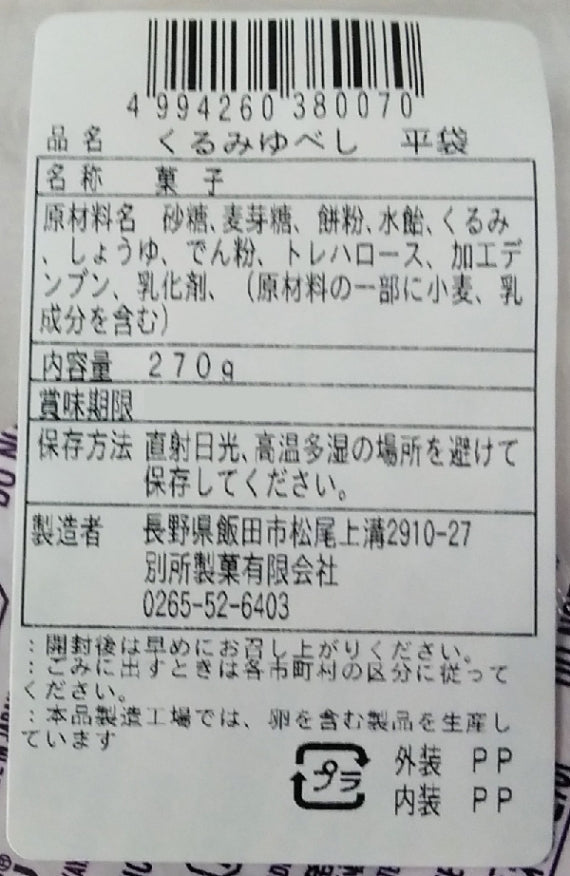 4 994260 380070
品名 くるみゆべし 平袋
名称 菓子
原材料名 砂糖、麦芽糖、餅粉、水飴、くるみ
、しょうゆ、でん粉、トレハロース、加工デ
ンプン、乳化剤、（原材料の一部に小麦、乳
成分を含む）
内容量 270g
賞味期限
保存方法 直射日光、高温多湿の場所を避けて
保存してください。
製造者 長野県飯田市松尾上溝2910-27
別所製菓有限会社
0265-52-6403
：開封後は早めにお召し上がりください。
：ごみに出すときは各市町村の区分に従って
ください。
：本品製造工場では、卵を含む製品を生産し
ています
プラ
外装 PP
内装 PP